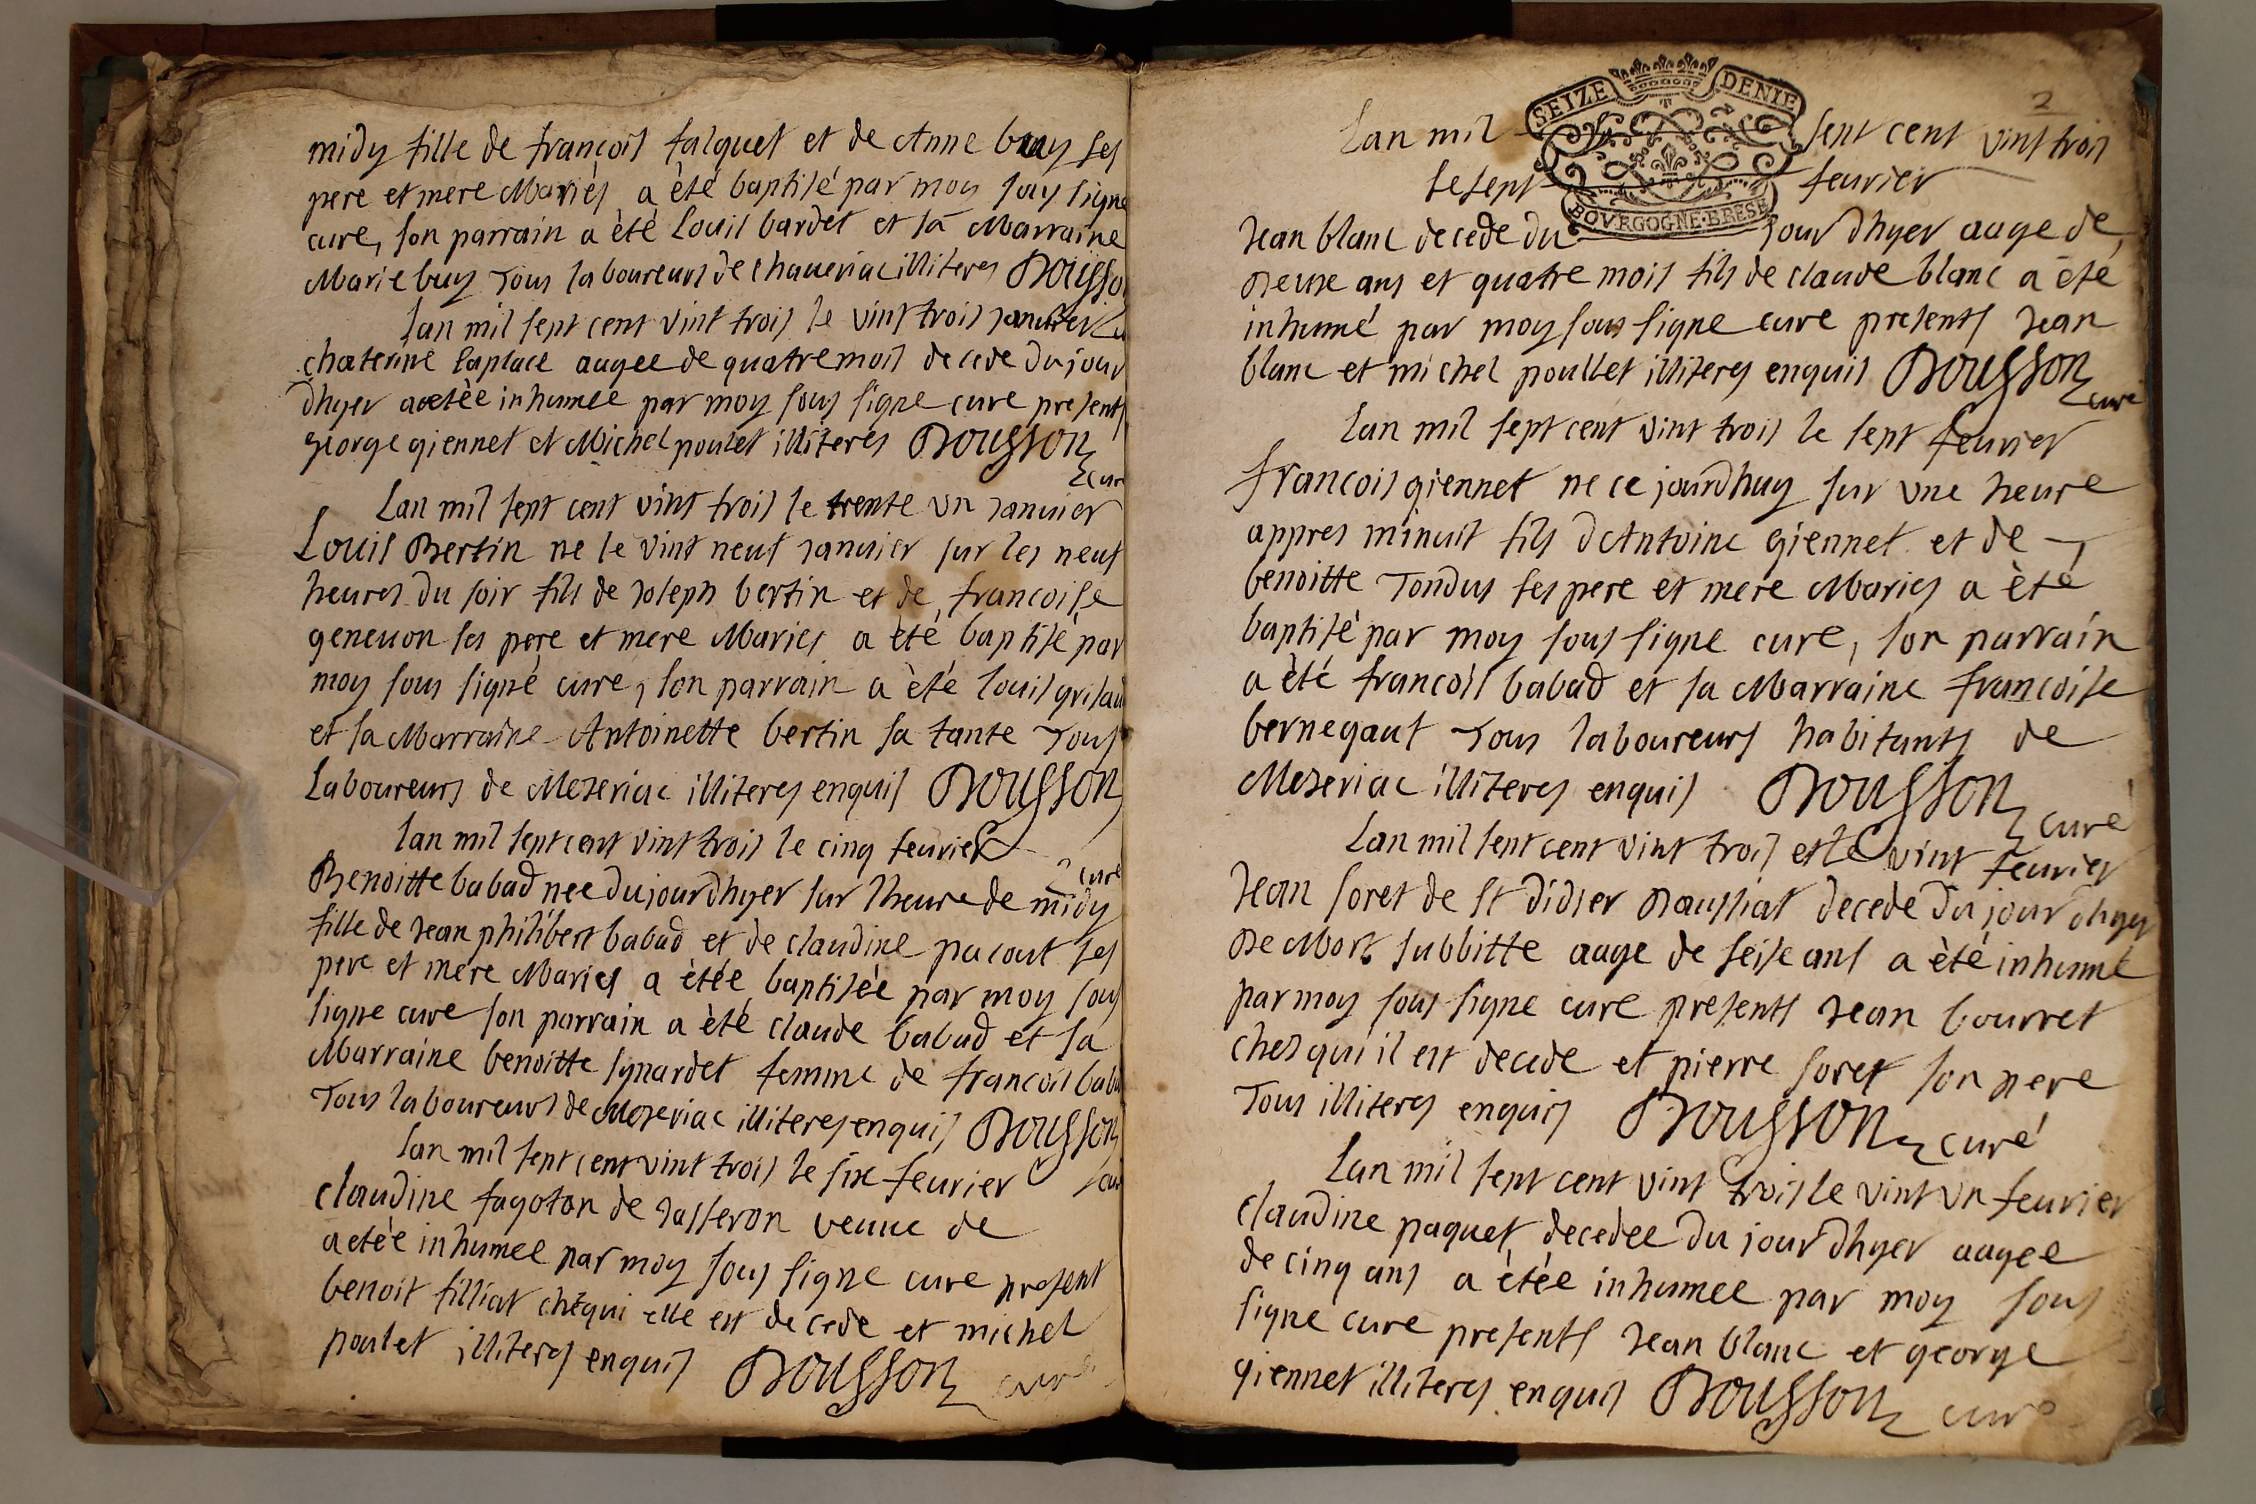 midy fille de françois falquet et de Anne buy ses
pere et mere Mariés a èté baptisé par moy sous signe
cure, son parrain a èté Louis bardet et sa Marraine
Marie buy Tous laboureurs de chaveriac illiteres Dousson
lan mil sept cent vint trois le vint trois janvier
chaterine laplace augee de quatre mois decede du jour
dhyer a etèe inhumee par moy sous signe cure presents
george giennet et Michel poulet illiteres Dousson
cure
Lan mil sept cent vint trois le trente un janvier
Louis Bertin ne le vint neuf janvier sur les neuf
heures du soir fils de joseph bertin et de francoise
genevon ses pere et mere Maries a èté baptisé par
moy sous signé cure, son parrain a èté louis grisau
et sa Marraine Antoinette bertin sa tante Tous
Laboureurs de Mezeriac illiteres enquis Dousson
cure
lan mil sept cent vint trois le cinq fevrier
Benoitte babad nee du jourdhyer sur lheure de midy
fille de jean philibert babad et de claudine pacout ses
pere et mere Maries a ètée baptisée par moy sous
signe cure son parrain a èté claude babad et sa
Marraine benoitte synardet femme de francois baba
Tous laboureurs de Mezeriac illiteres enquis Dousson
lan mil sept cent vint trois le six fevrier
claudine fagoton de jasseron veuve de
a etèe inhumee par moy sous signe cure present
benoit filliat chéqui elle est decede et michel
poulet illiteres enquis Dousson cure
2
SEIZE DENIE
BOVRGOGNE·BRESE
Lan mil sept cent vint trois
le sept fevrier
Jean blanc decede du jour dhyer auge de
deuxe ans et quatre mois fils de claude blanc a èté
inhumé par moy sous signe cure presents jean
blanc et michel poullet illiteres enquis Dousson
cure
lan mil sept cent vint trois le sept fevrier
francois giennet ne ce jourdhuy sur une heure
appres minuit fils dAntoine giennet et de
benoitte Tondus ses pere et mere Maries a èté
baptisé par moy sous signe cure, son parrain
a èté francois babad et sa Marraine francoise
bernegaut Tous laboureurs habitants de
Mezeriac illiteres enquis Dousson curé
Lan mil sept cent vint trois et le vint fevrier
Jean soret de st didier daussiat decede du jour dhyer
de Mort subbitte auge de seise ans a èté inhumé
par moy sous signe cure presents jean bourret
ches qui il est decede et pierre soret son pere
Tous illiteres enquis Dousson curé
Lan mil sept cent vint trois le vint un fevrier
claudine paquet decedee du jour dhyer augee
de cinq ans a ètée inhumee par moy sous
signe cure presents jean blanc et george
giennet illiteres enquis Dousson cure